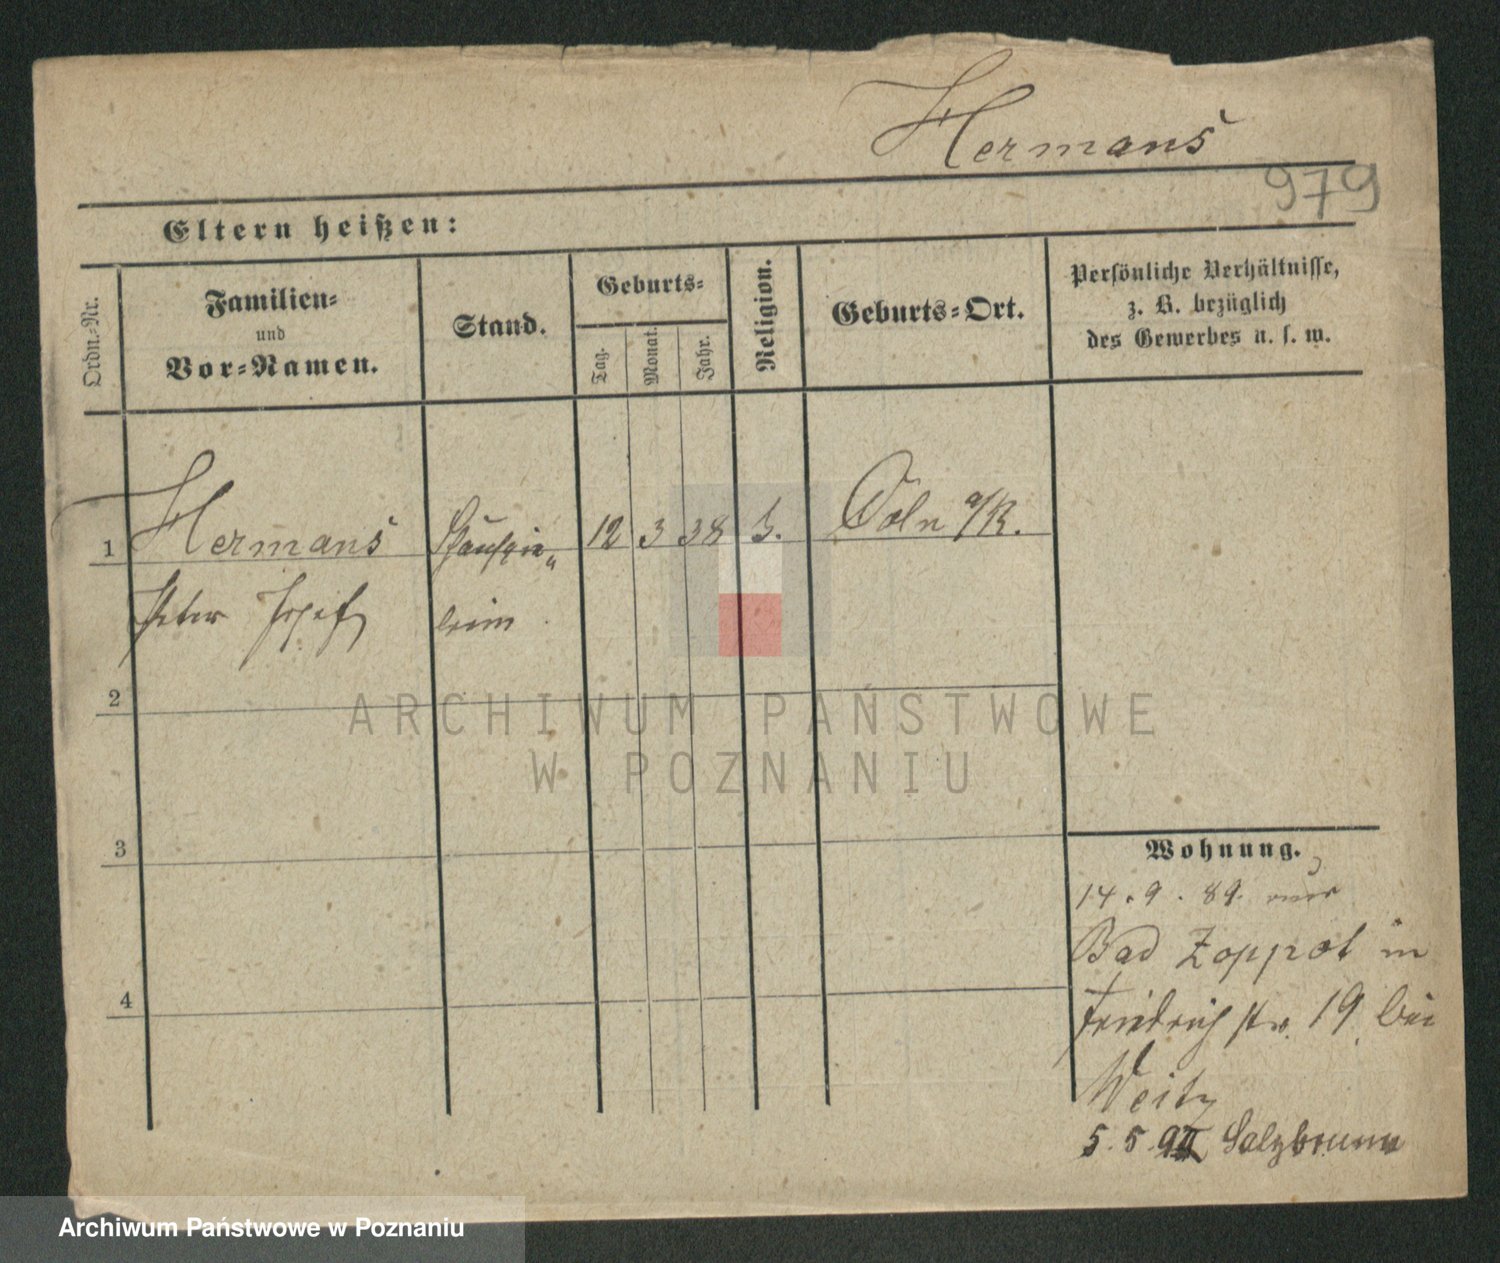 Hermans
979
Eltern heißen:
Ordn.-Nr.
Familien-
und
Vor-Namen.
Stand.
Geburts-
Tag.
Monat.
Jahr.
Religion.
Geburts-Ort.
Persönliche Verhältnisse,
z. B. bezüglich
des Gewerbes u. s. w.
1 Hermans 12 3 38 Cöln a/R.
Peter Josef
2
3
4
ARCHIWUM PAŃSTWOWE
W POZNANIU
Wohnung.
14.9.89.
Bad Zoppot in
Friedrichstr. 19 bei
Weitz
5.5. Salzbrunn
Archiwum Państwowe w Poznaniu